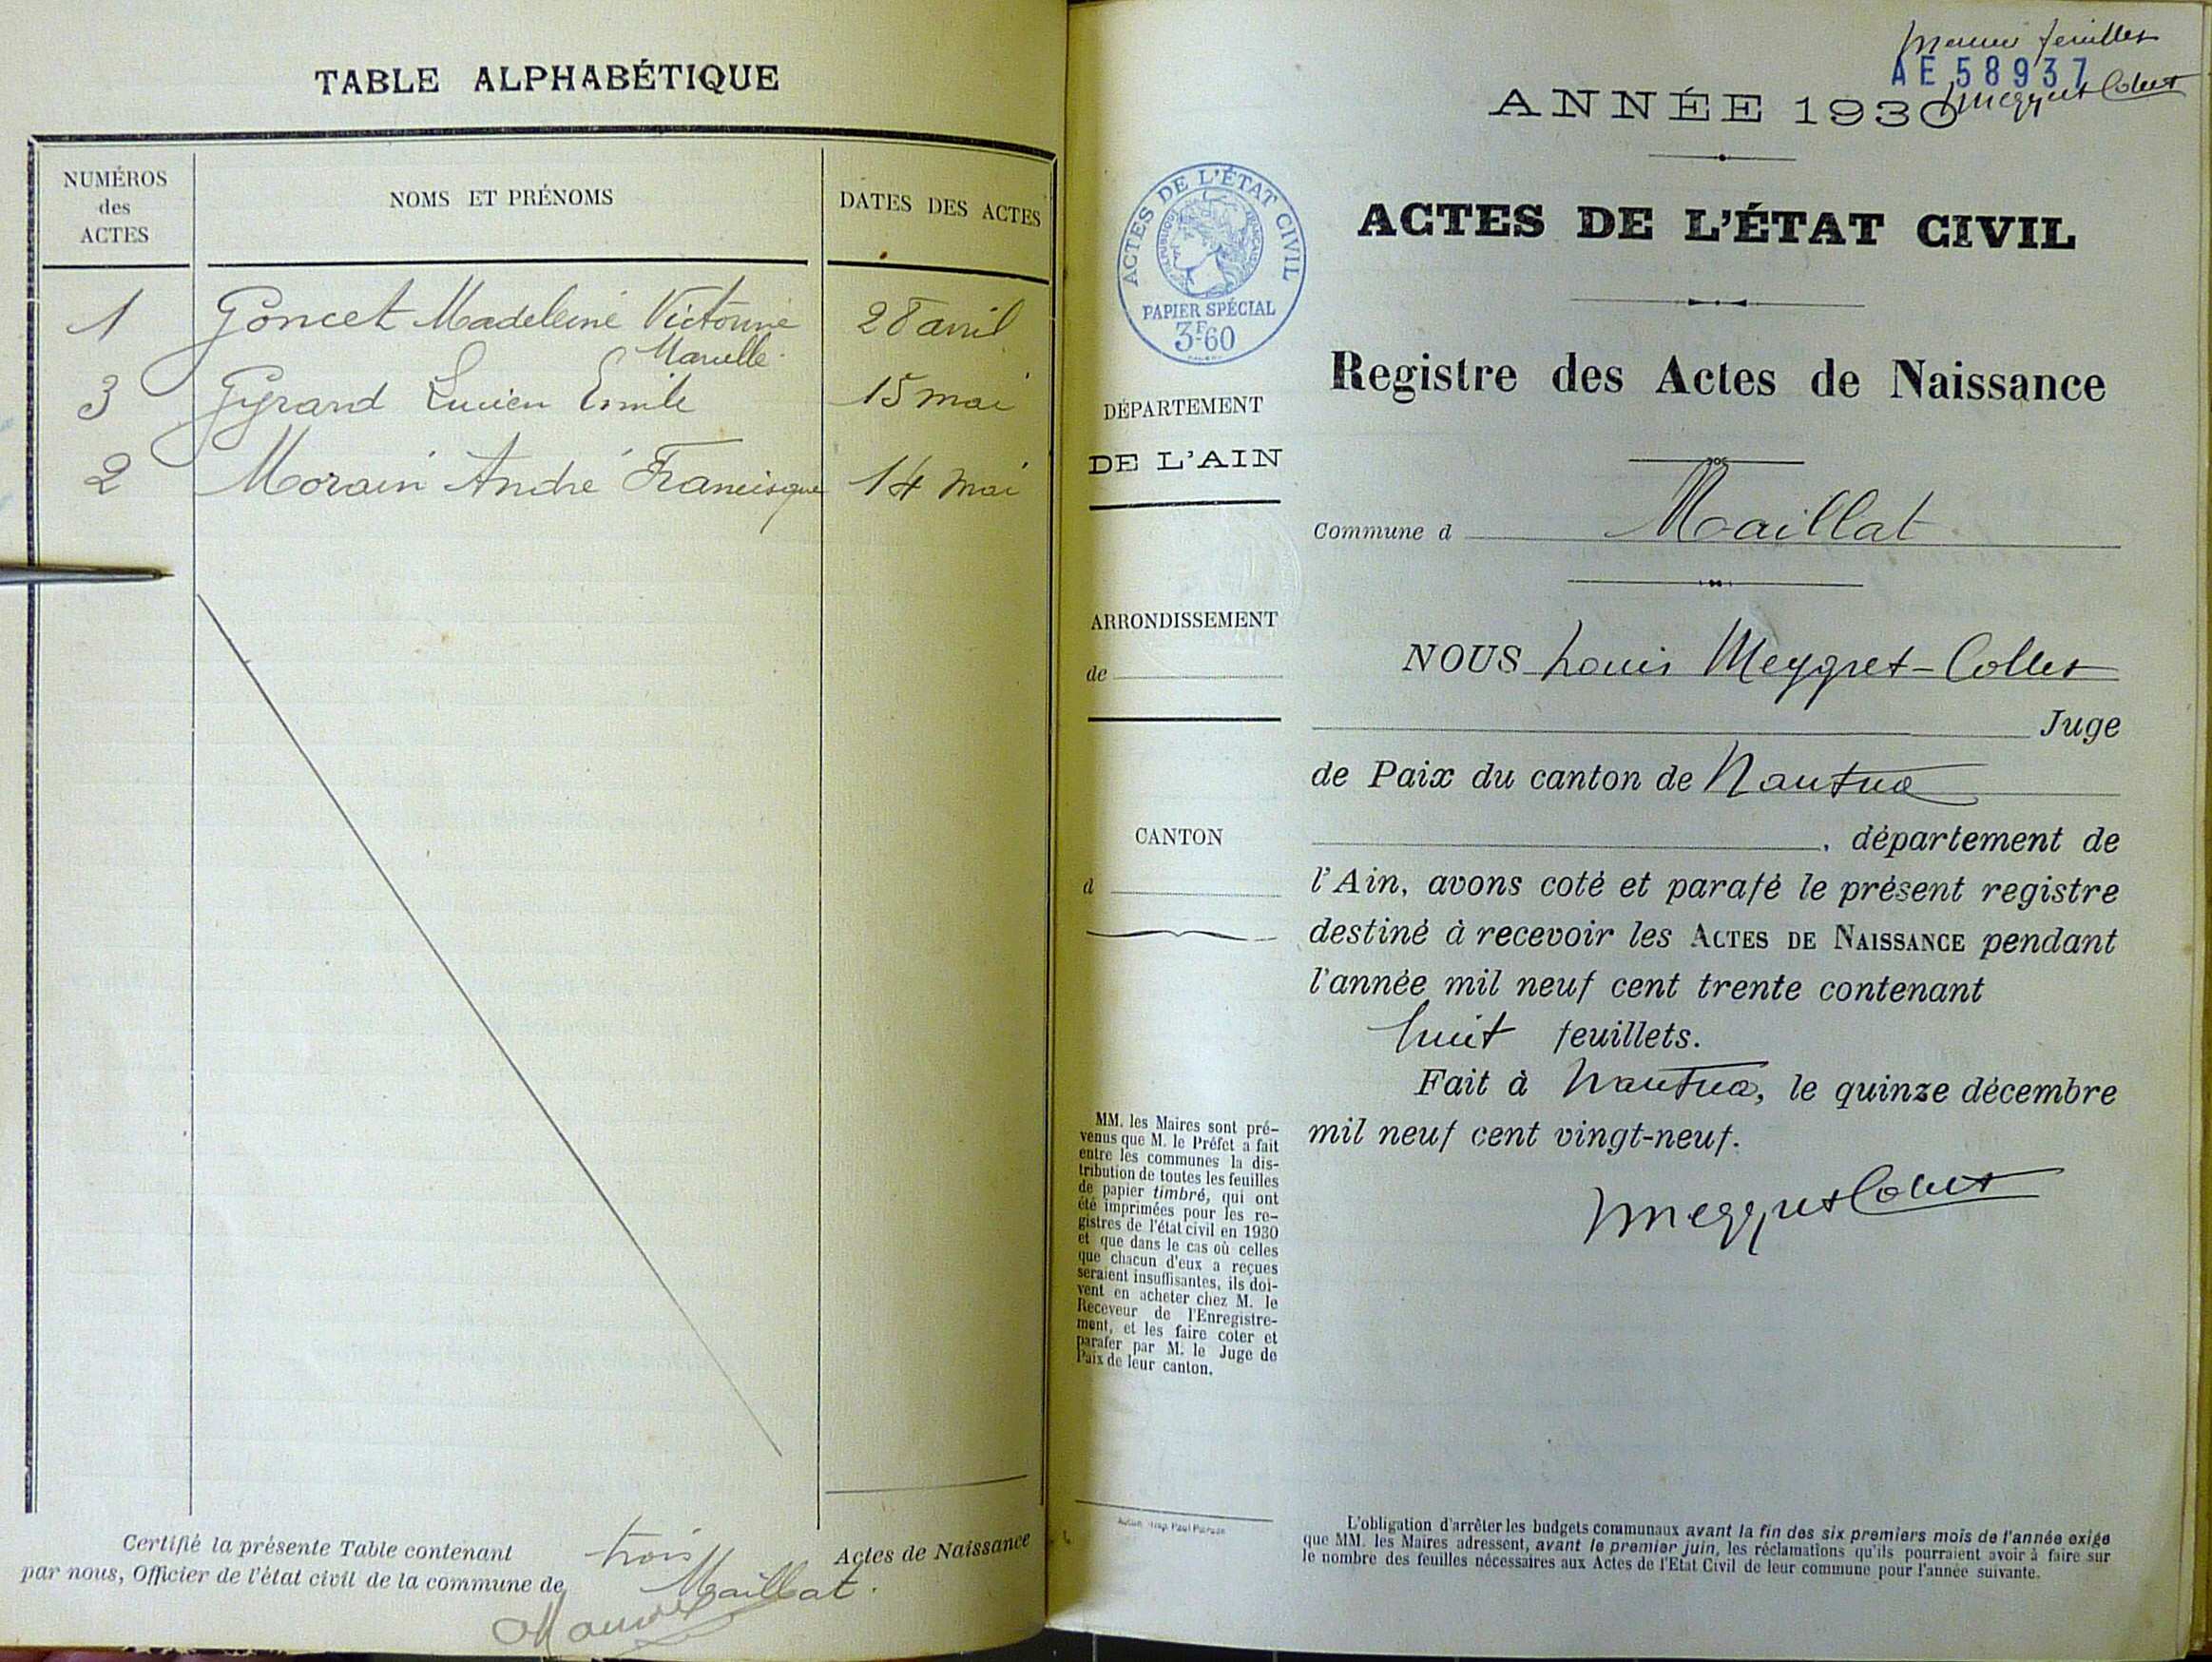 TABLE ALPHABÉTIQUE
NUMÉROS
des
ACTES
NOMS ET PRÉNOMS
DATES DES ACTES
1 Goncet Madeleine Victorine 28 avril
Marcelle
3 Gyrand Lucien Emile 15 mai
2 Morain André Francisque 14 mai
Certifié la présente Table contenant trois Actes de Naissance
par nous, Officier de l'état civil de la commune de Maillat.
feuillet
AE 58937
Meygret Collet
ANNÉE 1930
ACTES DE L'ÉTAT CIVIL
RÉPUBLIQUE FRANÇAISE
PAPIER SPÉCIAL
3F60
ACTES DE L'ÉTAT CIVIL
Registre des Actes de Naissance
DÉPARTEMENT
DE L'AIN
Commune d Maillat
ARRONDISSEMENT
de
NOUS Louis Meygret-Collet
Juge
de Paix du canton de Nantua
CANTON
d
, département de
l'Ain, avons coté et parafé le présent registre
destiné à recevoir les ACTES DE NAISSANCE pendant
l'année mil neuf cent trente contenant
huit feuillets.
Fait à Nantua, le quinze décembre
mil neuf cent vingt-neuf.
Meygret Collet
MM. les Maires sont pré-
venus que M. le Préfet a fait
entre les communes la dis-
tribution de toutes les feuilles
de papier timbré, qui ont
été imprimées pour les re-
gistres de l'état civil en 1930
et que dans le cas où celles
que chacun d'eux a reçues
seraient insuffisantes, ils doi-
vent en acheter chez M. le
Receveur de l'Enregistre-
ment, et les faire coter et
parafer par M. le Juge de
Paix de leur canton.
L'obligation d'arrêter les budgets communaux avant la fin des six premiers mois de l'année exige
que MM. les Maires adressent, avant le premier juin, les réclamations qu'ils pourraient avoir à faire sur
le nombre des feuilles nécessaires aux Actes de l'Etat Civil de leur commune pour l'année suivante.